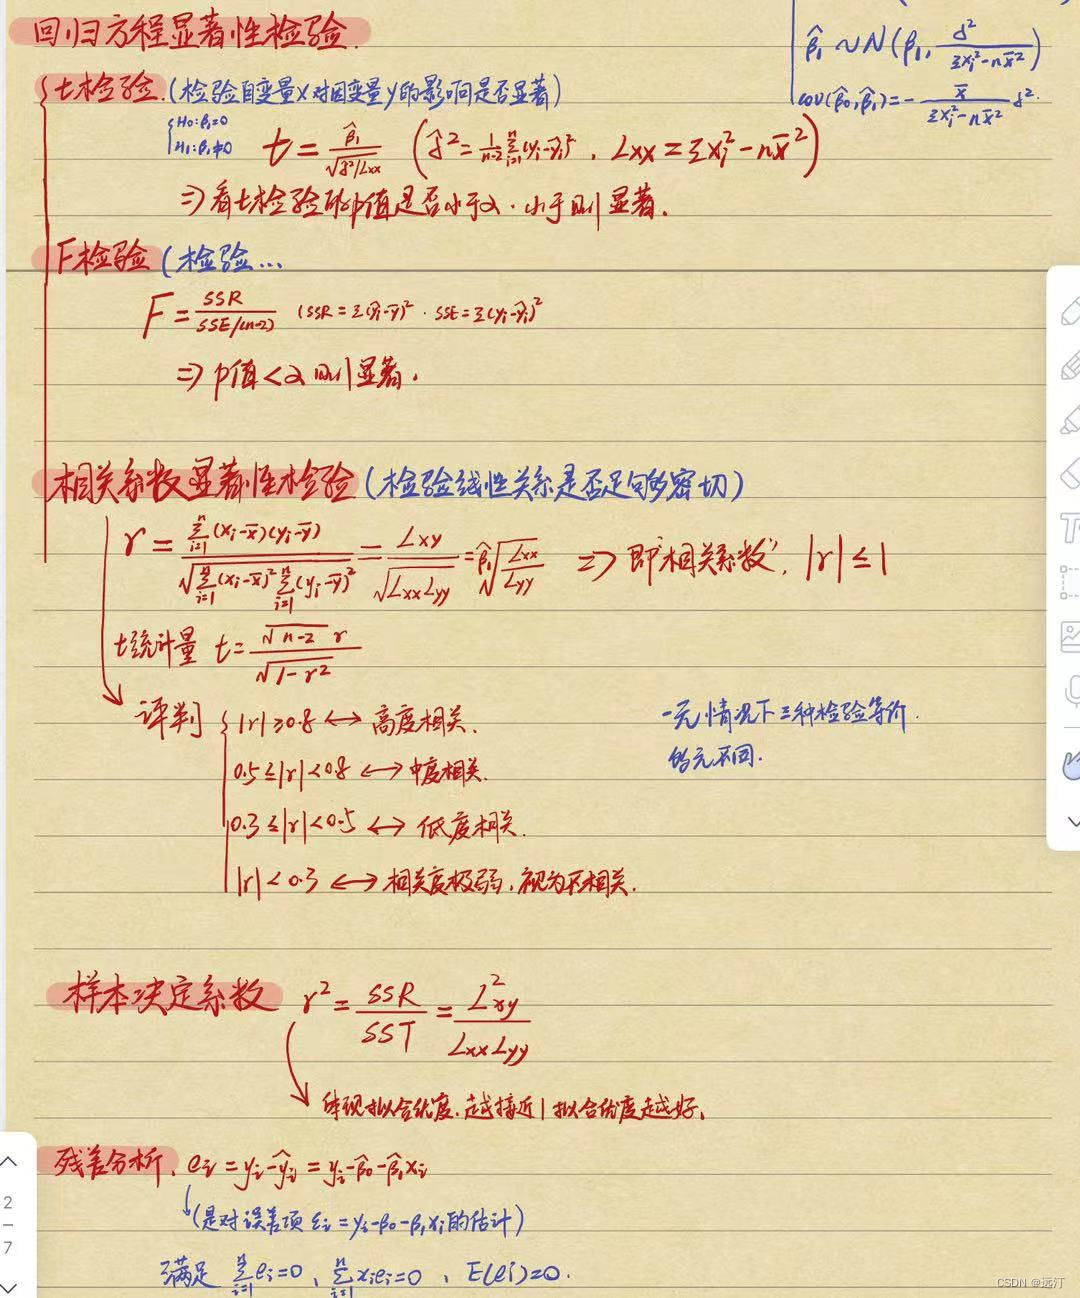 回归方程显著性检验.
β̂₁ ~ N(β₁, σ²/(Σxᵢ²-nx̄²))
cov(β̂₀,β̂₁)=-x̄/(Σxᵢ²-nx̄²) σ².
t检验.(检验自变量x对因变量y的影响是否显著)
H₀:β₁=0
H₁:β₁≠0
t = β̂₁/√(σ̂²/Lxx) (σ̂²=1/(n-2) Σᵢ₌₁ⁿ(yᵢ-ŷᵢ)², Lxx=Σxᵢ²-nx̄²)
⇒看t检验的p值是否小于α.小于则显著.
F检验(检验...
F=SSR/(SSE/(n-2)) (SSR=Σ(ŷᵢ-ȳ)². SSE=Σ(yᵢ-ŷᵢ)²
⇒ p值<α则显著.
相关系数显著性检验(检验线性关系是否足够密切)
r = Σᵢ₌₁ⁿ(xᵢ-x̄)(yᵢ-ȳ)/√(Σᵢ₌₁ⁿ(xᵢ-x̄)²Σᵢ₌₁ⁿ(yᵢ-ȳ)²) = Lxy/√(LxxLyy) = β̂₁√(Lxx/Lyy) ⇒ 即"相关系数", |r|≤1
t统计量 t=√(n-2) r/√(1-r²)
评判 |r|≥0.8 ↔ 高度相关.
一元情况下三种检验等价.
0.5≤|r|<0.8 ↔ 中度相关.
多元不同.
0.3≤|r|<0.5 ↔ 低度相关.
|r|<0.3 ↔ 相关度极弱,视为不相关.
样本决定系数 r²=SSR/SST=L²xy/(LxxLyy)
体现拟合优度.越接近1拟合优度越好.
残差分析. eᵢ=yᵢ-ŷᵢ=yᵢ-β̂₀-β̂₁xᵢ
(是对误差项 εᵢ=yᵢ-β₀-β₁xᵢ的估计)
满足 Σᵢ₌₁ⁿeᵢ=0、Σᵢ₌₁ⁿxᵢeᵢ=0、E(eᵢ)=0.
2
7
CSDN @远汀